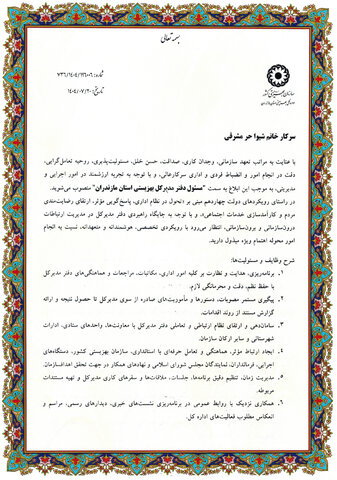 بسمه تعالی
سازمان بهزیستی کشور
شماره: ۷۳۶/۱۴۰۴/۱۹۶۰۶
تاریخ: ۱۴۰۴/۰۷/۲۰
سرکار خانم شیوا حر مشرفی
با عنایت به مراتب تعهد سازمانی، وجدان کاری، صداقت، حسن خلق، مسئولیت‌پذیری، روحیه تعامل‌گرایی،
دقت در انجام امور و انضباط فردی و اداری سرکارعالی، و با توجه به تجربه ارزشمند در امور اجرایی و
مدیریتی، به موجب این ابلاغ به سمت "مسئول دفتر مدیرکل بهزیستی استان مازندران" منصوب می‌شوید.
در راستای رویکردهای دولت چهاردهم مبنی بر «تحول در نظام اداری، پاسخ‌گویی مؤثر، ارتقای رضایت‌مندی
مردم و کارآمدسازی خدمات اجتماعی»، و با توجه به جایگاه راهبردی دفتر مدیرکل در مدیریت ارتباطات
درون‌سازمانی و برون‌سازمانی، انتظار می‌رود با رویکردی تخصصی، هوشمندانه و متعهدانه، نسبت به انجام
امور محوله اهتمام ویژه مبذول دارید.
شرح وظایف و مسئولیت‌ها:
۱. برنامه‌ریزی، هدایت و نظارت بر کلیه امور اداری، مکاتبات، مراجعات و هماهنگی‌های دفتر مدیرکل
با حفظ نظم، دقت و محرمانگی لازم.
۲. پیگیری مستمر مصوبات، دستورها و مأموریت‌های صادره از سوی مدیرکل تا حصول نتیجه و ارائه
گزارش مستند از روند اقدامات.
۳. سامان‌دهی و ارتقای نظام ارتباطی و تعاملی دفتر مدیرکل با معاونت‌ها، واحدهای ستادی، ادارات
شهرستانی و سایر ارکان سازمان.
۴. ایجاد ارتباط مؤثر، هماهنگی و تعامل حرفه‌ای با استانداری، سازمان بهزیستی کشور، دستگاه‌های
اجرایی، فرمانداران، نمایندگان مجلس شورای اسلامی و نهادهای همکار در جهت تحقق اهداف‌سازمان.
۵. مدیریت زمان، تنظیم دقیق برنامه‌ها، جلسات، ملاقات‌ها و سفرهای کاری مدیرکل و تهیه مستندات
مربوطه.
۶. همکاری نزدیک با روابط عمومی در برنامه‌ریزی نشست‌های خبری، دیدارهای رسمی، مراسم و
انعکاس مطلوب فعالیت‌های اداره کل.